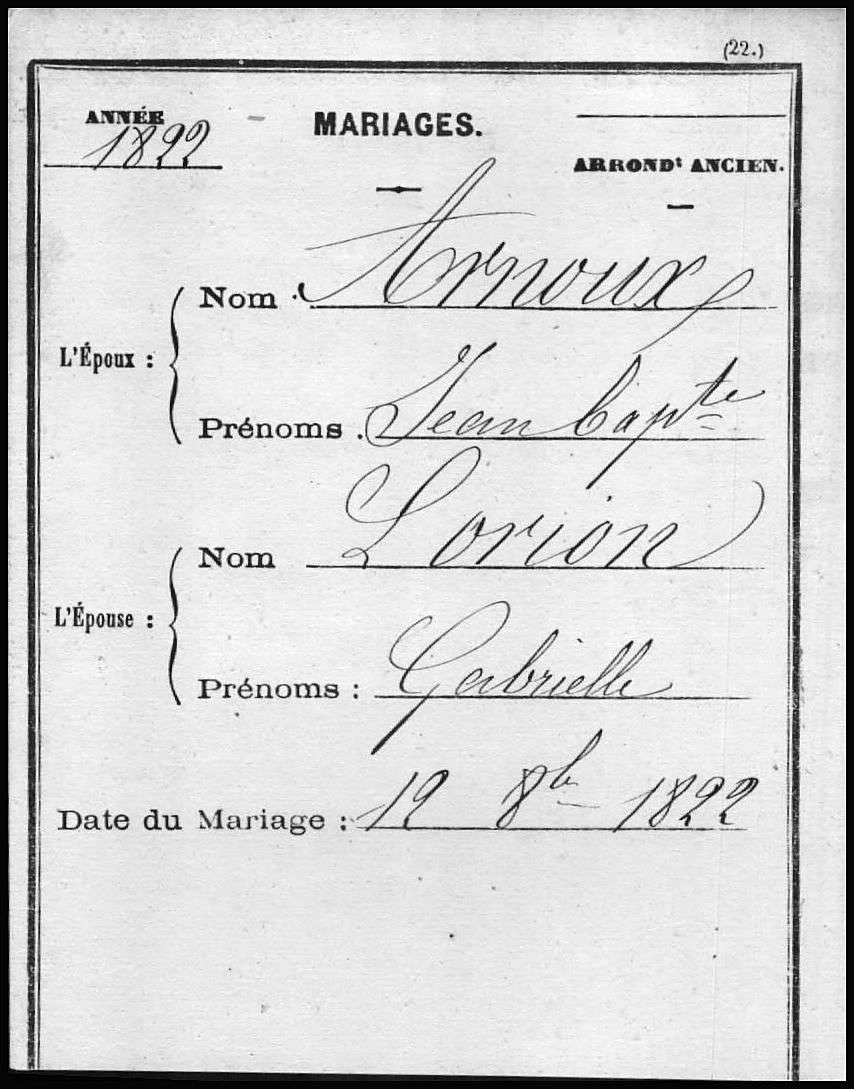 (22.)
ANNÉE
1822
MARIAGES.
ARRONDt ANCIEN.
L'Époux :
Nom : Arnoux
Prénoms : Jean bapte
L'Épouse :
Nom Lorion
Prénoms : Gabrielle
Date du Mariage : 12 8b 1822